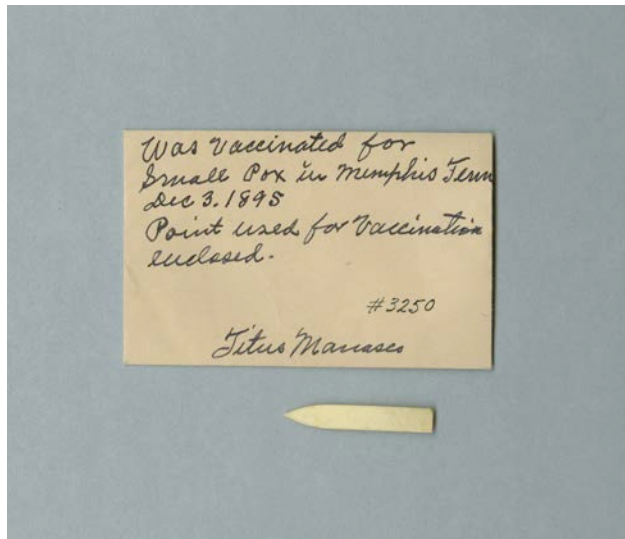 Was Vaccinated for
Small Pox in Memphis Tenn
Dec 3. 1895
Point used for Vaccination
enclosed.
#3250
Titus Manasco